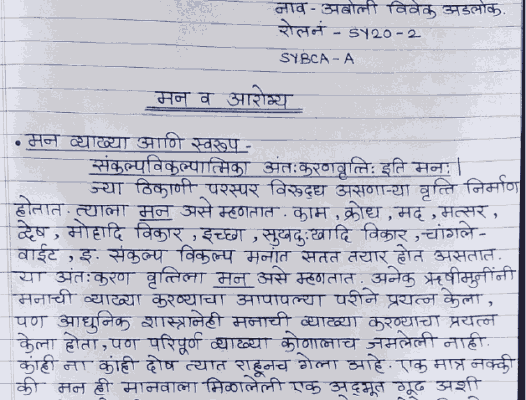 नाव - अबोली विवेक अडलोक.
रोलनं - SY20-2
SYBCA-A
मन व आरोग्य
• मन व्याख्या आणि स्वरूप -
संकल्पविकल्पात्मिका अंतःकरणवृत्तिः इति मनः |
ज्या ठिकाणी परस्पर विरूद्ध असणाऱ्या वृत्ति निर्माण
होतात. त्याला मन असे म्हणतात. काम, क्रोध, मद, मत्सर,
द्वेष, मोहादि विकार, इच्छा, सुखदुःखादि विकार, चांगले-
वाईट, इ. संकल्प विकल्प मनांत सतत तयार होत असतात.
या अंतःकरण वृत्तिला मन असे म्हणतात. अनेक ऋषीमुनींनी
मनाची व्याख्या करण्याचा आपापल्या परीने प्रयत्न केला,
पण आधुनिक शास्त्रानेही मनाची व्याख्या करण्याचा प्रयत्न
केला होता, पण परिपूर्ण व्याख्या कोणालाच जमलेली नाही.
कांही ना कांही दोष त्यात राहूनच गेला आहे. एक मात्र नक्की
की मन ही मानवाला मिळालेली एक अद्‌भूत गूढ अशी